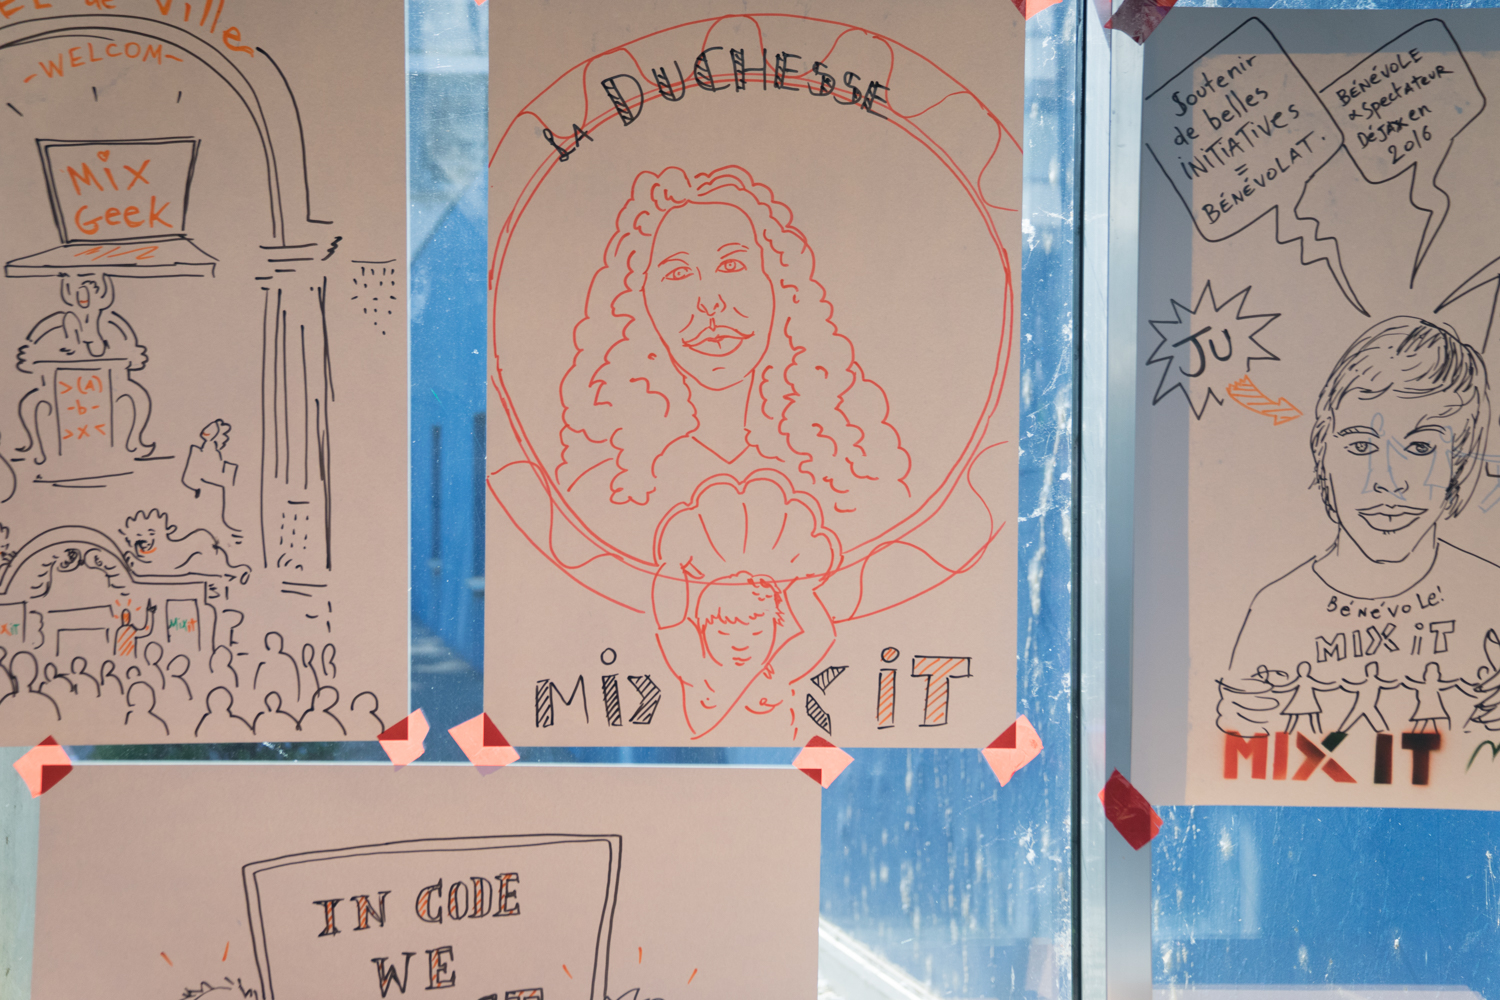 EL de Ville
-WELCOM-
MiX
Geek
>(A)
-b-
>x<
MixiT
LA DUCHESSE
MiX iT
Soutenir
de belles
iNiTiATiVes
=
BÉNÉVOLAT.
BÉNÉVOLE
& Spectateur
DéJAX en
2016
JU
Bénévole!
MIX iT
MIX IT
IN CODE
WE